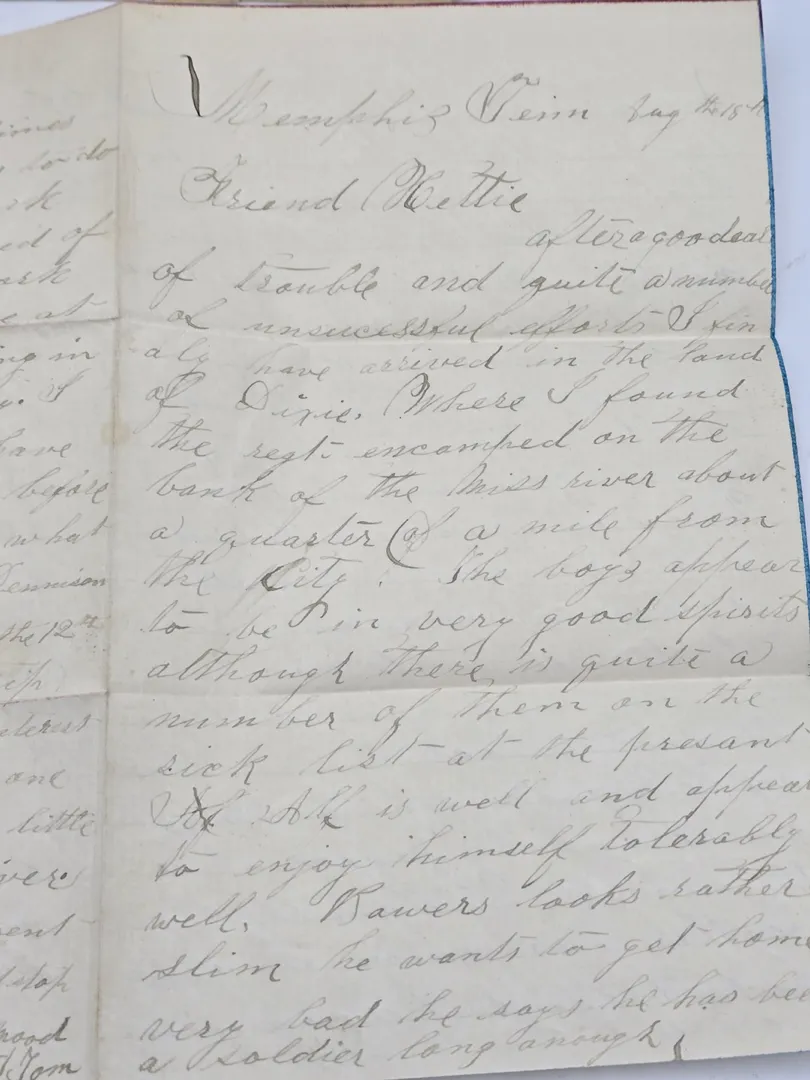 Memphis Tenn Aug the 18th
Friend Hettie
after a good deal
of trouble and quite a number
of unsucessful efforts I fin
aly have arrived in the land
of Dixie. Where I found
the regt encamped on the
bank of the Miss river about
a quarter of a mile from
the City. The boys appear
to be in very good spirits
although there is quite a
number of them on the
sick list at the presant
Alf is well and appear
to enjoy himself tolerably
well. Bowers looks rather
slim he wants to get home
very bad he says he has bee
a soldier long anough
to do
ed of
at
ng in
I
have
before
what
Dennison
the 12th
one
little
stop
Tom